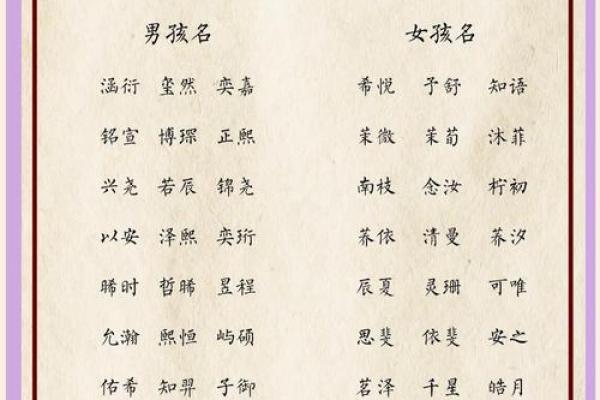 男孩名 女孩名
涵衍 玺然 奕嘉 希悦 予舒 知语
铭宣 博琛 正熙 茉微 茉荀 沐菲
兴尧 若辰 锦尧 南枝 念汝 柠初
以安 泽熙 奕珩 荞依 清曼 荞汐
晞时 哲晞 昱程 辰夏 灵珊 可唯
允瀚 熙恒 屿硕 思斐 依斐 安之
佑希 知羿 子御 茗泽 千星 皓月